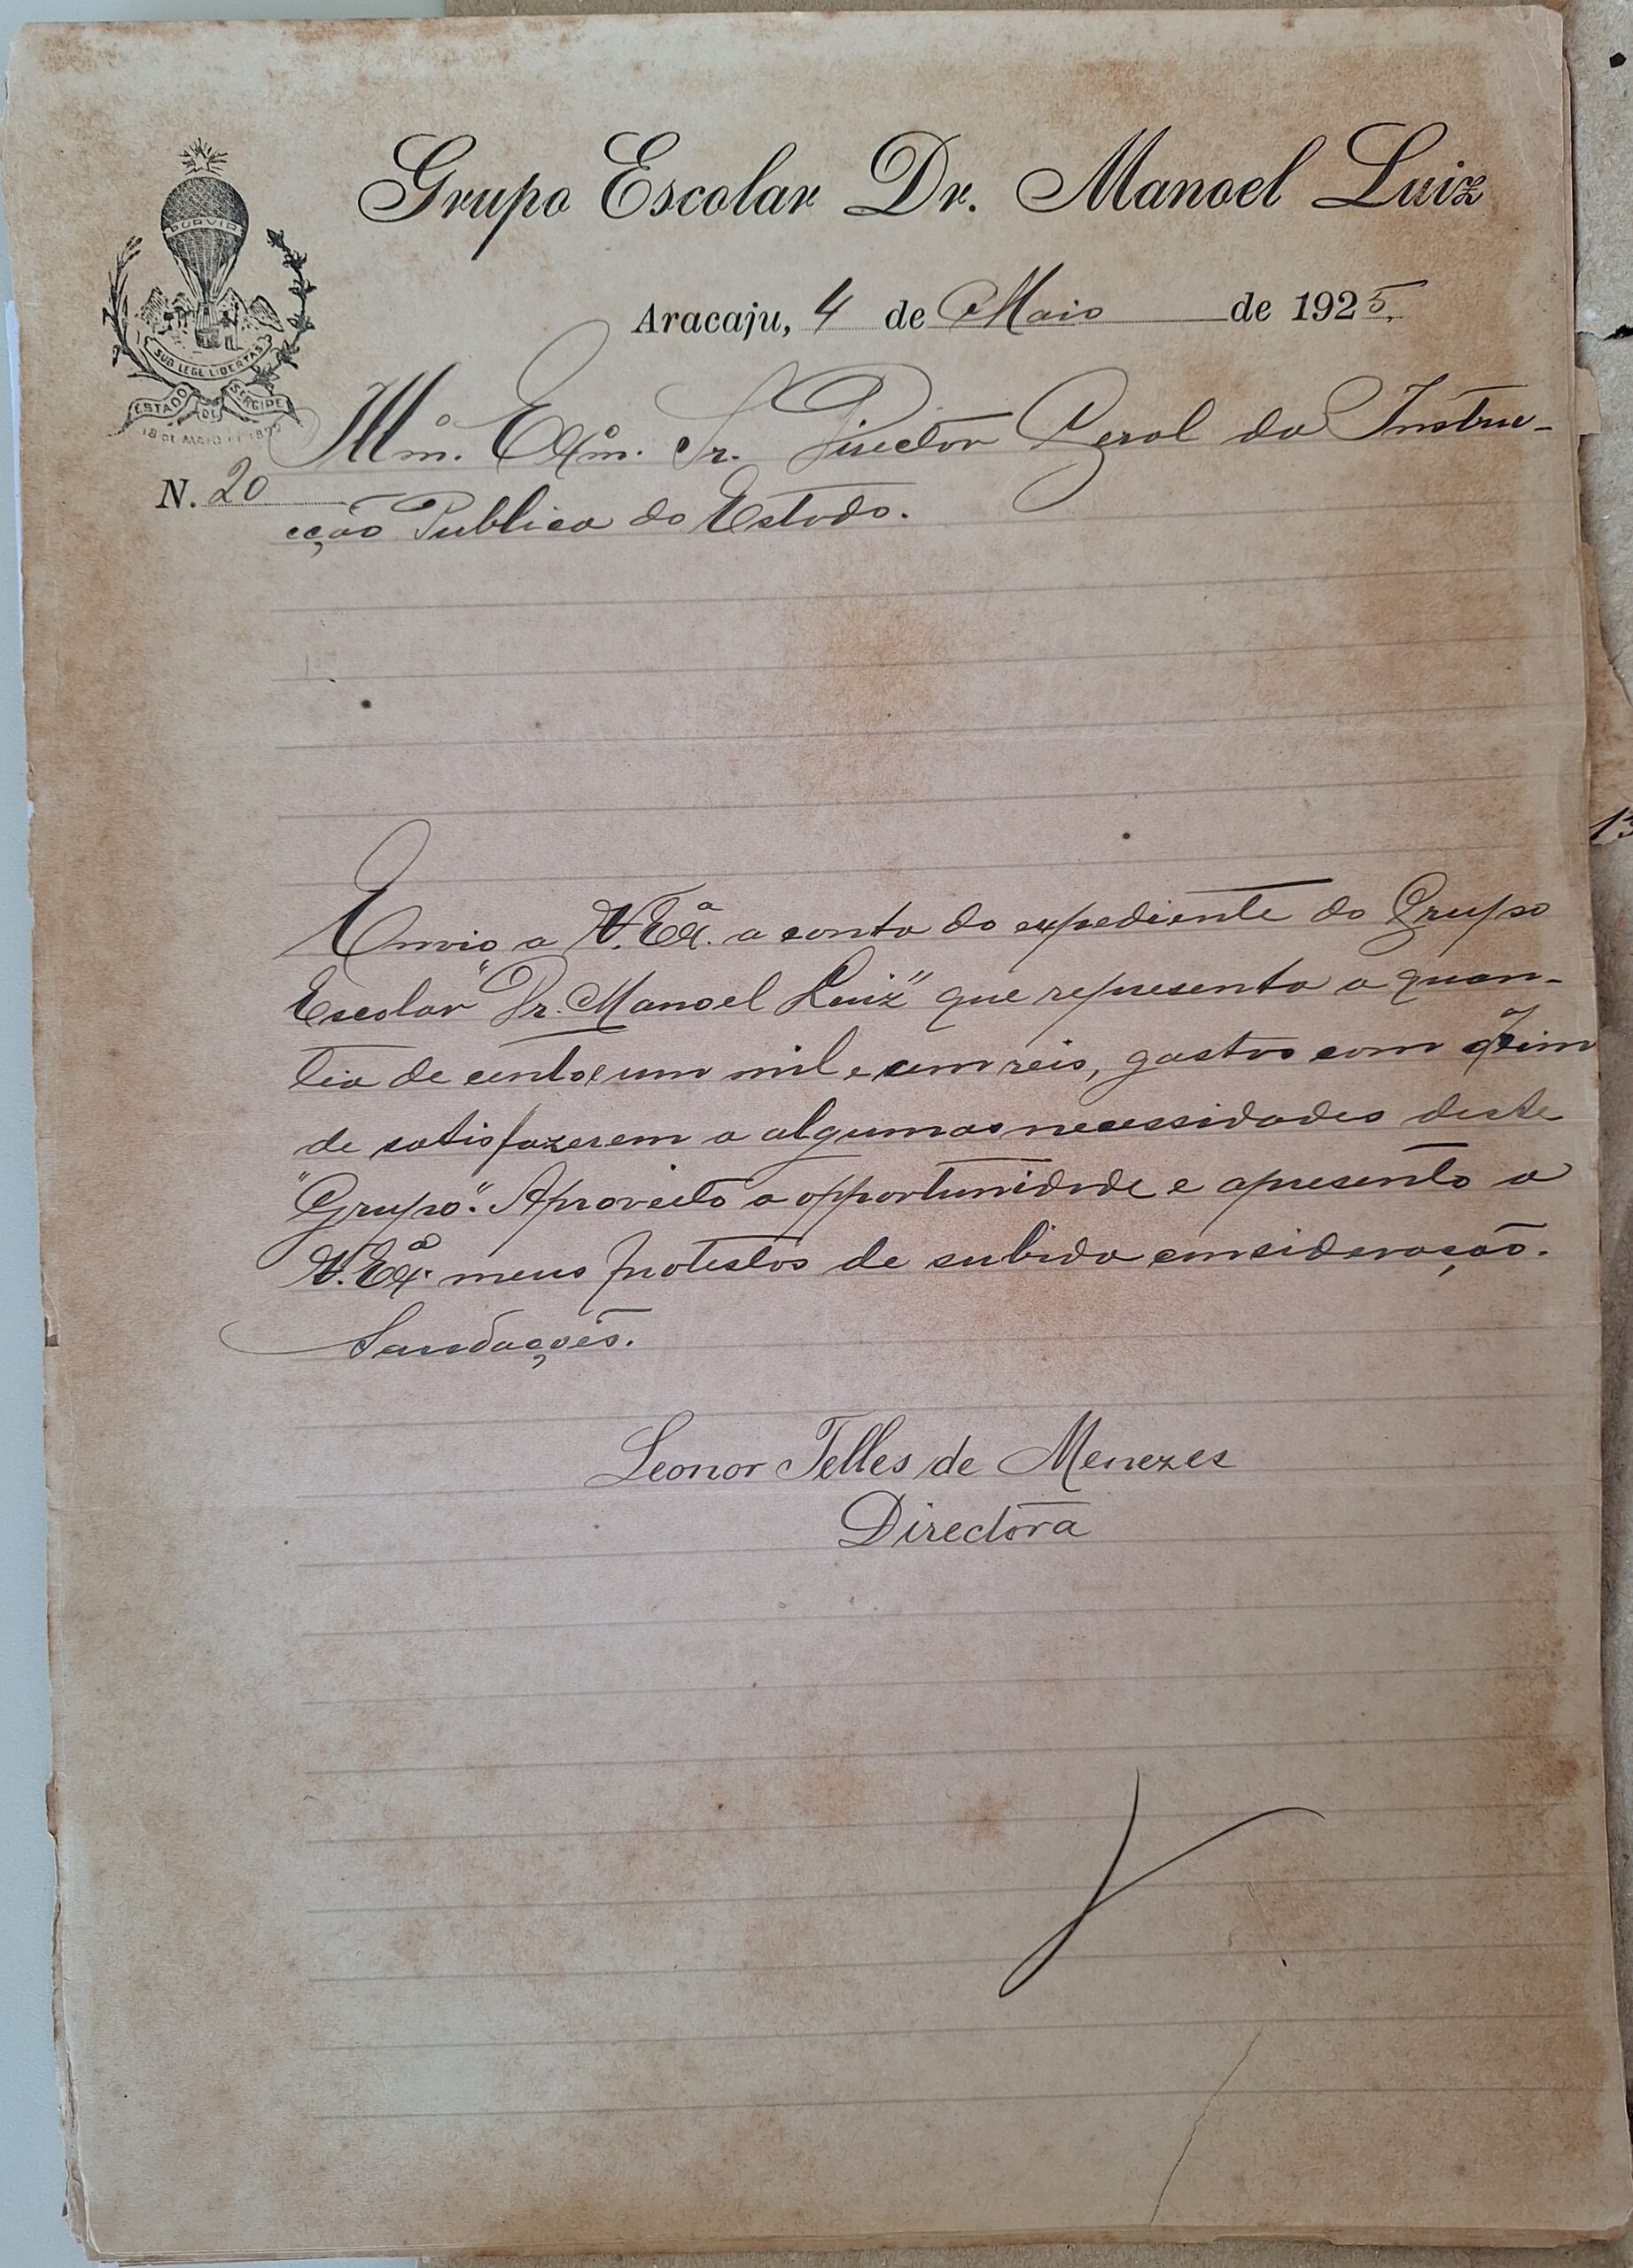 Grupo Escolar Dr. Manoel Luiz
PORVIR
SUB LEGE LIBERTAS
ESTADO DE SERGIPE
18 DE MAIO DE 1892
Aracaju, 4 de Maio de 1925.
Illmº. Exmº. Sr. Director Geral da Instru-
N. 20
cção Publica do Estado.
Envio a V. Exª. a conta do expediente do Grupo
Escolar "Dr. Manoel Luiz" que representa a quan-
tia de cento e um mil e cem reis, gastos com o fim
de satisfazerem a algumas necessidades deste
"Grupo". Aproveito a opportunidade e apresento a
V. Exª. meus protestos de subida consideração.
Saudações.
Leonor Telles de Menezes
Directora